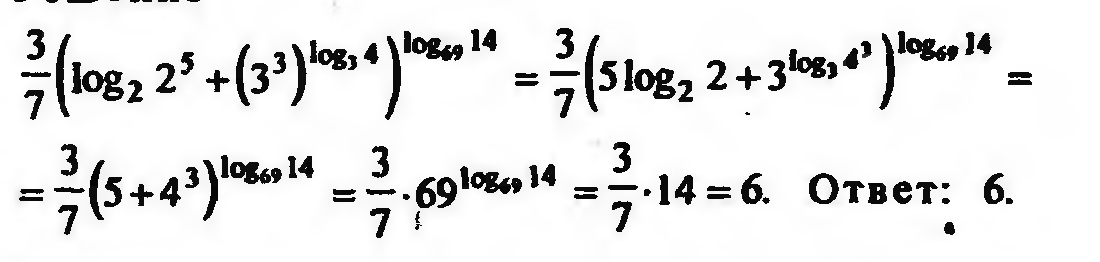 3/7(log₂ 2⁵ + (3³)^(log₃ 4))^(log₆₉ 14) = 3/7(5 log₂ 2 + 3^(log₃ 4³))^(log₆₉ 14) =
= 3/7(5 + 4³)^(log₆₉ 14) = 3/7 · 69^(log₆₉ 14) = 3/7 · 14 = 6. Ответ: 6.